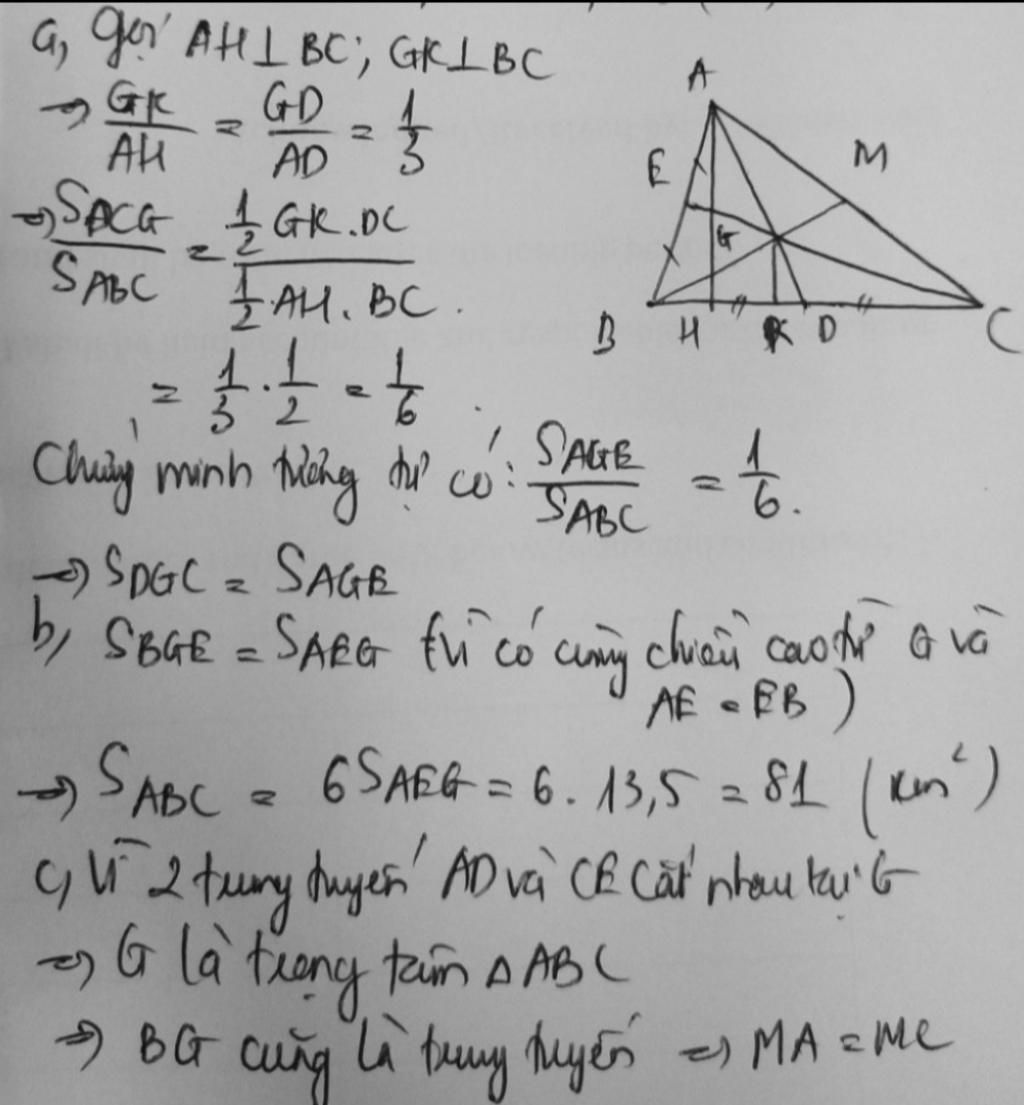 a, gọi AH⊥BC; GK⊥BC
→ GK/AH = GD/AD = 1/3
→ SDCG/SABC = (1/2 GK.DC)/(1/2.AH.BC).
= 1/3 . 1/2 = 1/6.
Chứng minh tương tự có: SAGE/SABC = 1/6.
→ SDGC = SAGE
b, SBGE = SAEG (vì có cùng chiều cao từ G và
AE = EB)
→ SABC = 6SAEG = 6. 13,5 = 81 (cm²)
c, Vì 2 trung tuyến AD và CE cắt nhau tại G
→ G là trọng tâm Δ ABC
→ BG cũng là trung tuyến → MA = MC
A
E
M
G
B H K D C